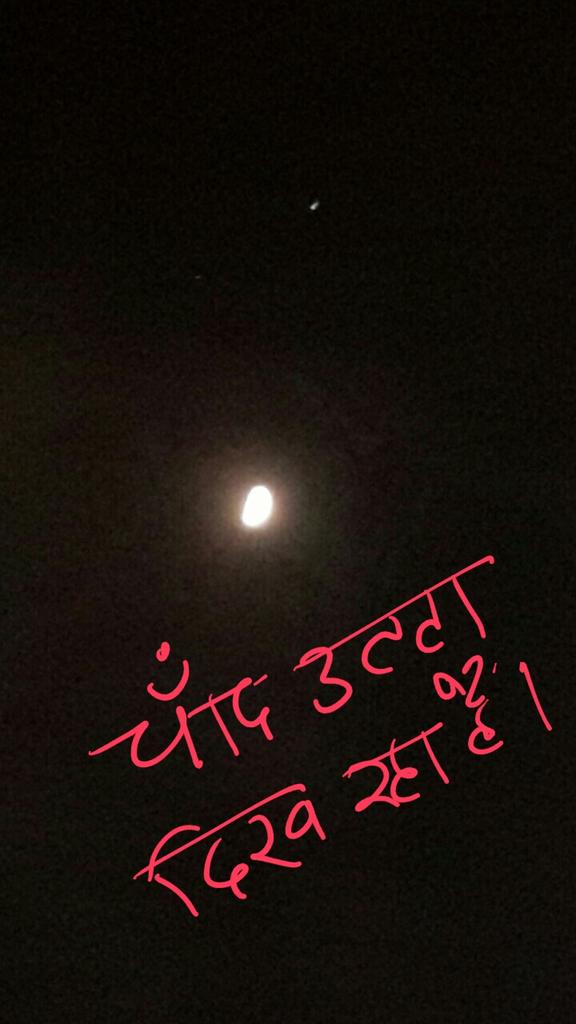 चाँद उटटा
दिख रहा है।